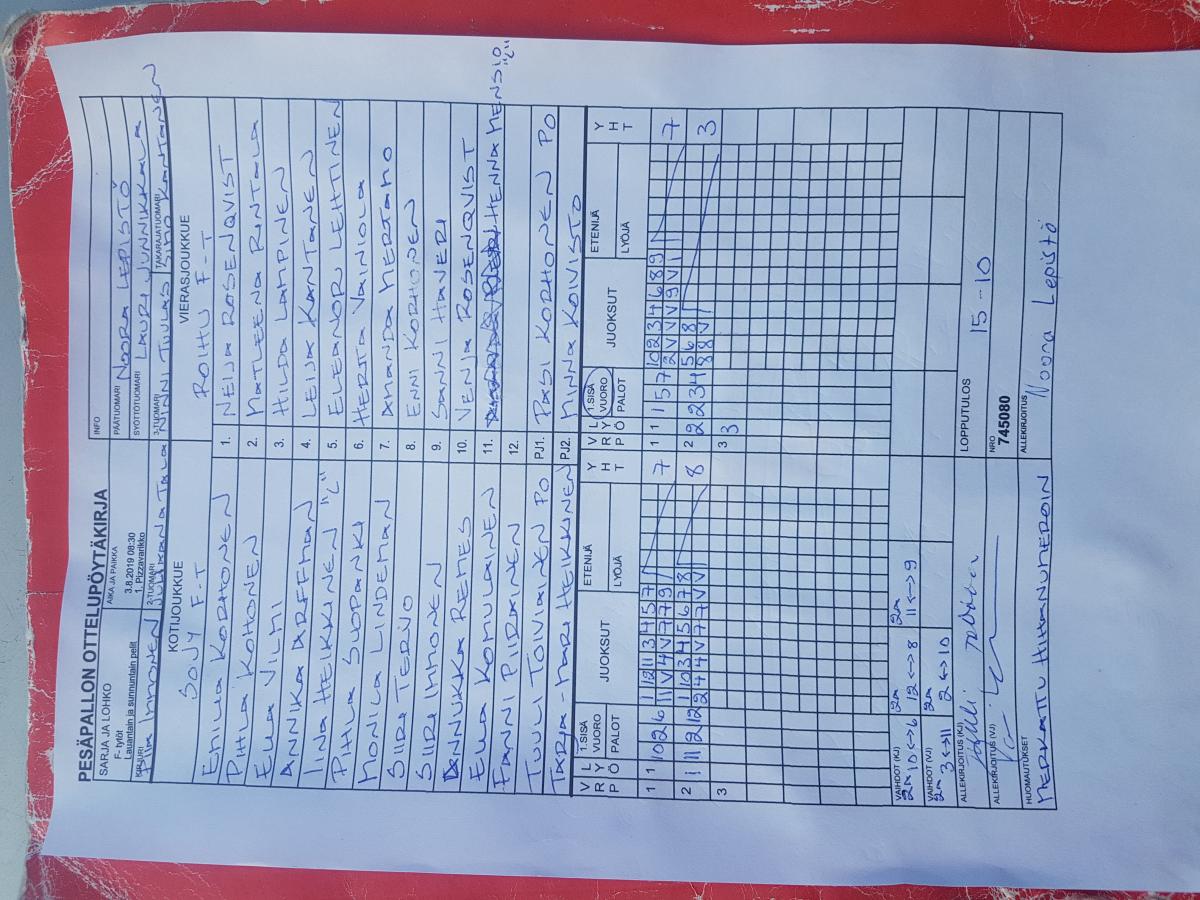 PESÄPALLON OTTELUPÖYTÄKIRJA
SARJA JA LOHKO
F- tytöt
Lauantain ja sunnuntain pelit
AIKA JA PAIKKA
3.8.2019 08:30
1. Pizzavarikko
INFO
PÄÄTUOMARI NOORA LEPISTÖ
SYÖTTÖTUOMARI LAURI JUNNIKKALA
KIRJURI IMMONEN
2-TUOMARI
3-TUOMARI NINNI TUULAS
TAKARAJATUOMARI KANTANEN
KOTIJOUKKUE
SOJY F-T
VIERASJOUKKUE
ROIHU F-T
EMILIA KORHONEN 1. NEIJA ROSENQVIST
PIHLA KOHONEN 2. MATLEENA RINTALA
ELLA VILMI 3. HILDA LAMPINEN
ANNIKA ARFFMAN 4. LEIJA KANTANEN
IINA HEIKKINEN "C" 5. ELEANOOR LEHTINEN
PIHLA SUOPANKI 6. HERTA VAINIOLA
MONICA LINDEMAN 7. AMANDA MERTAMO
SIIRI TERVO 8. ENNI KORHONEN
SIIRI IMMONEN 9. SANNI HAVERI
ANNUKKA REMES 10. VENJA ROSENQVIST
ELLA KOMULAINEN 11. HENNA MENSIO "C"
FANNI PIIRAINEN 12.
TUULI TOIVIAINEN PO PJ1. PASI KORHONEN PO
TARJA-MARI HEIKKINEN PJ2. MINNA KOIVISTO
V R P L Y Ö 1.SISÄ VUORO PALOT JUOKSUT ETENIJÄ LYÖJÄ Y H T V R P L Y Ö 1.SISÄ VUORO PALOT JUOKSUT ETENIJÄ LYÖJÄ Y H T
1 10 2 6 1 12 11 3 4 5 7 7 1 1 1 5 7 10 2 3 4 6 8 9 7
11 V 4 V 7 7 9 2 V V V 9 V 11
2 1 11 2 12 1 10 3 4 5 6 7 8 8 2 2 2 3 4 5 6 8 3
2 4 4 V 7 7 V V 8 8 V
3 3 3
VAIHDOT (KJ) 2A 10 <-> 6 2A 12 <-> 8 2A 11 <-> 9
VAIHDOT (VJ) 2A 3 <-> 11 2A 2 <-> 10
ALLEKIRJOITUS (KJ)
LOPPUTULOS 15-10
ALLEKIRJOITUS (VJ)
NRO
745080
HUOMAUTUKSET
MERKATTU HIHANUMEROIN
ALLEKIRJOITUS Noora Lepistö